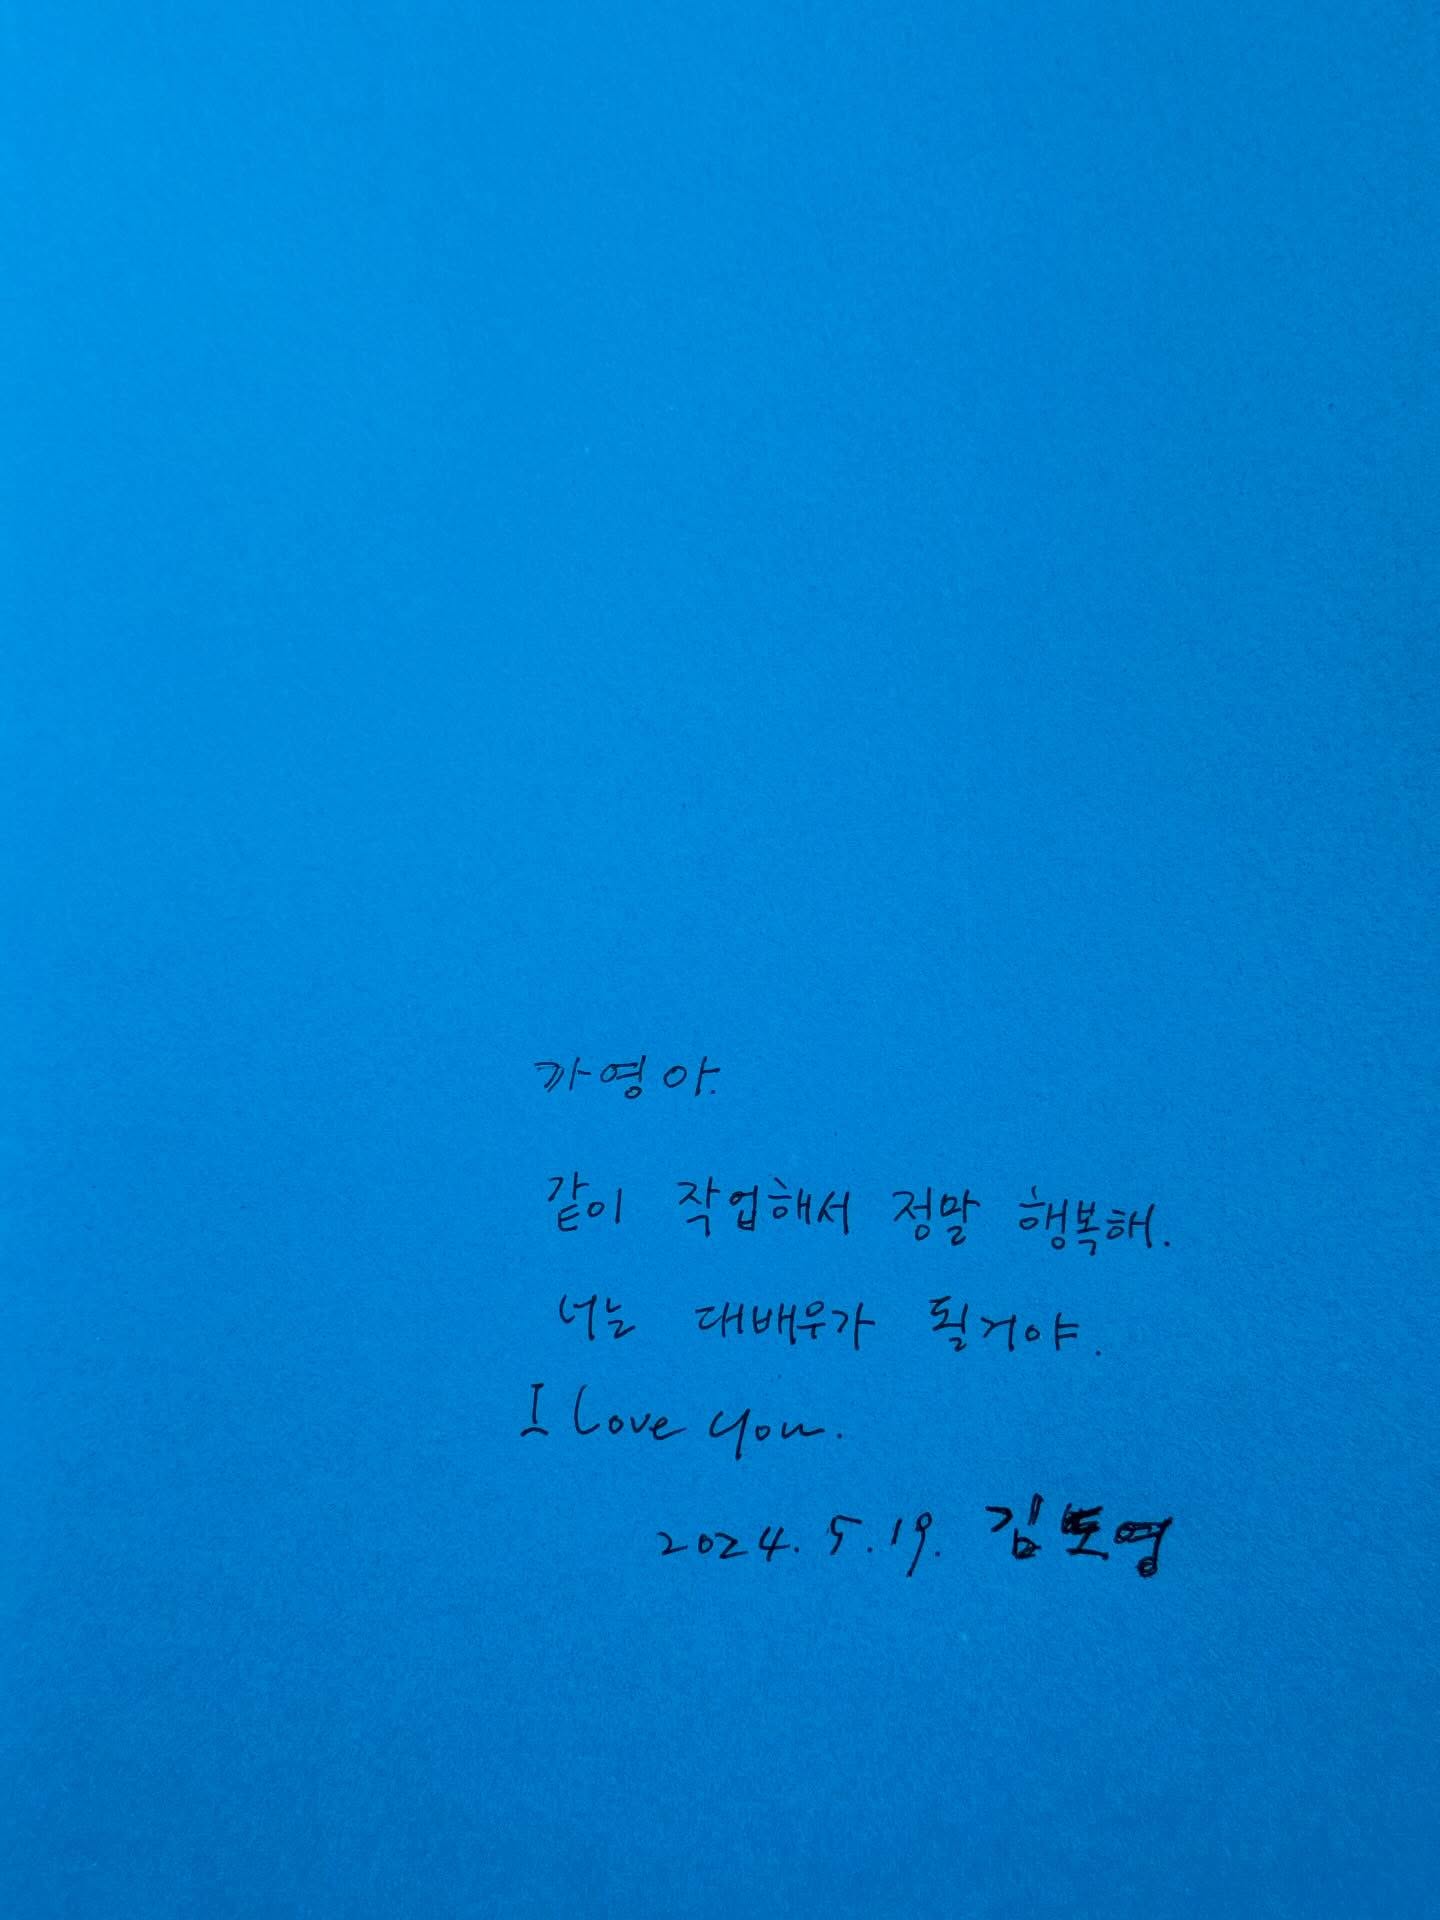 가영아.
같이 작업해서 정말 행복해.
너는 대배우가 될거야.
I love you.
2024. 5. 19. 김도영